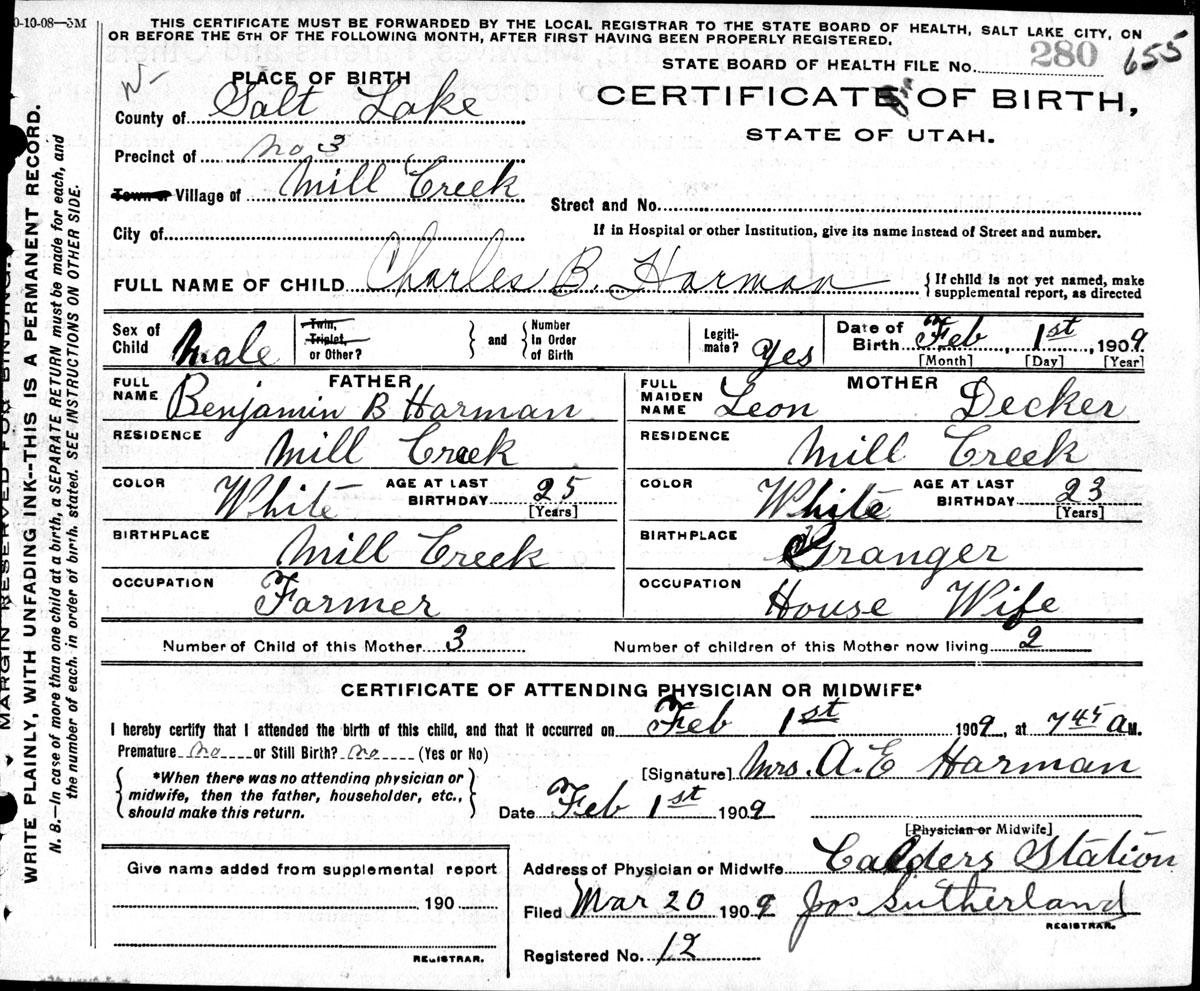 0-10-08—3M
THIS CERTIFICATE MUST BE FORWARDED BY THE LOCAL REGISTRAR TO THE STATE BOARD OF HEALTH, SALT LAKE CITY, ON
OR BEFORE THE 5TH OF THE FOLLOWING MONTH, AFTER FIRST HAVING BEEN PROPERLY REGISTERED.
STATE BOARD OF HEALTH FILE No. 280 655
PLACE OF BIRTH
County of Salt Lake
CERTIFICATE OF BIRTH,
STATE OF UTAH.
Precinct of No 3
Town or Village of Mill Creek
Street and No.
City of
If in Hospital or other Institution, give its name instead of Street and number.
FULL NAME OF CHILD Charles B. Harman
{If child is not yet named, make
supplemental report, as directed
Sex of Child Male
Twin, Triplet, or Other?
} and { Number In Order of Birth
Legiti-mate? Yes
Date of Birth Feb, 1st, 1909
[Month] [Day] [Year]
FATHER
FULL NAME Benjamin B Harman
RESIDENCE Mill Creek
COLOR White AGE AT LAST BIRTHDAY 25
[Years]
BIRTHPLACE Mill Creek
OCCUPATION Farmer
MOTHER
FULL MAIDEN NAME Leon Decker
RESIDENCE Mill Creek
COLOR White AGE AT LAST BIRTHDAY 23
[Years]
BIRTHPLACE Granger
OCCUPATION House Wife
Number of Child of this Mother 3 Number of children of this Mother now living 2
CERTIFICATE OF ATTENDING PHYSICIAN OR MIDWIFE*
I hereby certify that I attended the birth of this child, and that it occurred on Feb 1st 1909, at 7 45 a M.
Premature no or Still Birth? no (Yes or No)
*When there was no attending physician or
midwife, then the father, householder, etc.,
should make this return.
[Signature] Mrs. A. E Harman
Date Feb 1st 1909
[Physician or Midwife]
Address of Physician or Midwife Calders Station
Filed Mar 20 1909 Jos Sutherland
REGISTRAR.
Registered No. 12
Give name added from supplemental report
190
REGISTRAR.
MARGIN RESERVED FOR BINDING.
WRITE PLAINLY, WITH UNFADING INK--THIS IS A PERMANENT RECORD.
N. B.—In case of more than one child at a birth, a SEPARATE RETURN must be made for each, and
the number of each, in order of birth, stated. SEE INSTRUCTIONS ON OTHER SIDE.